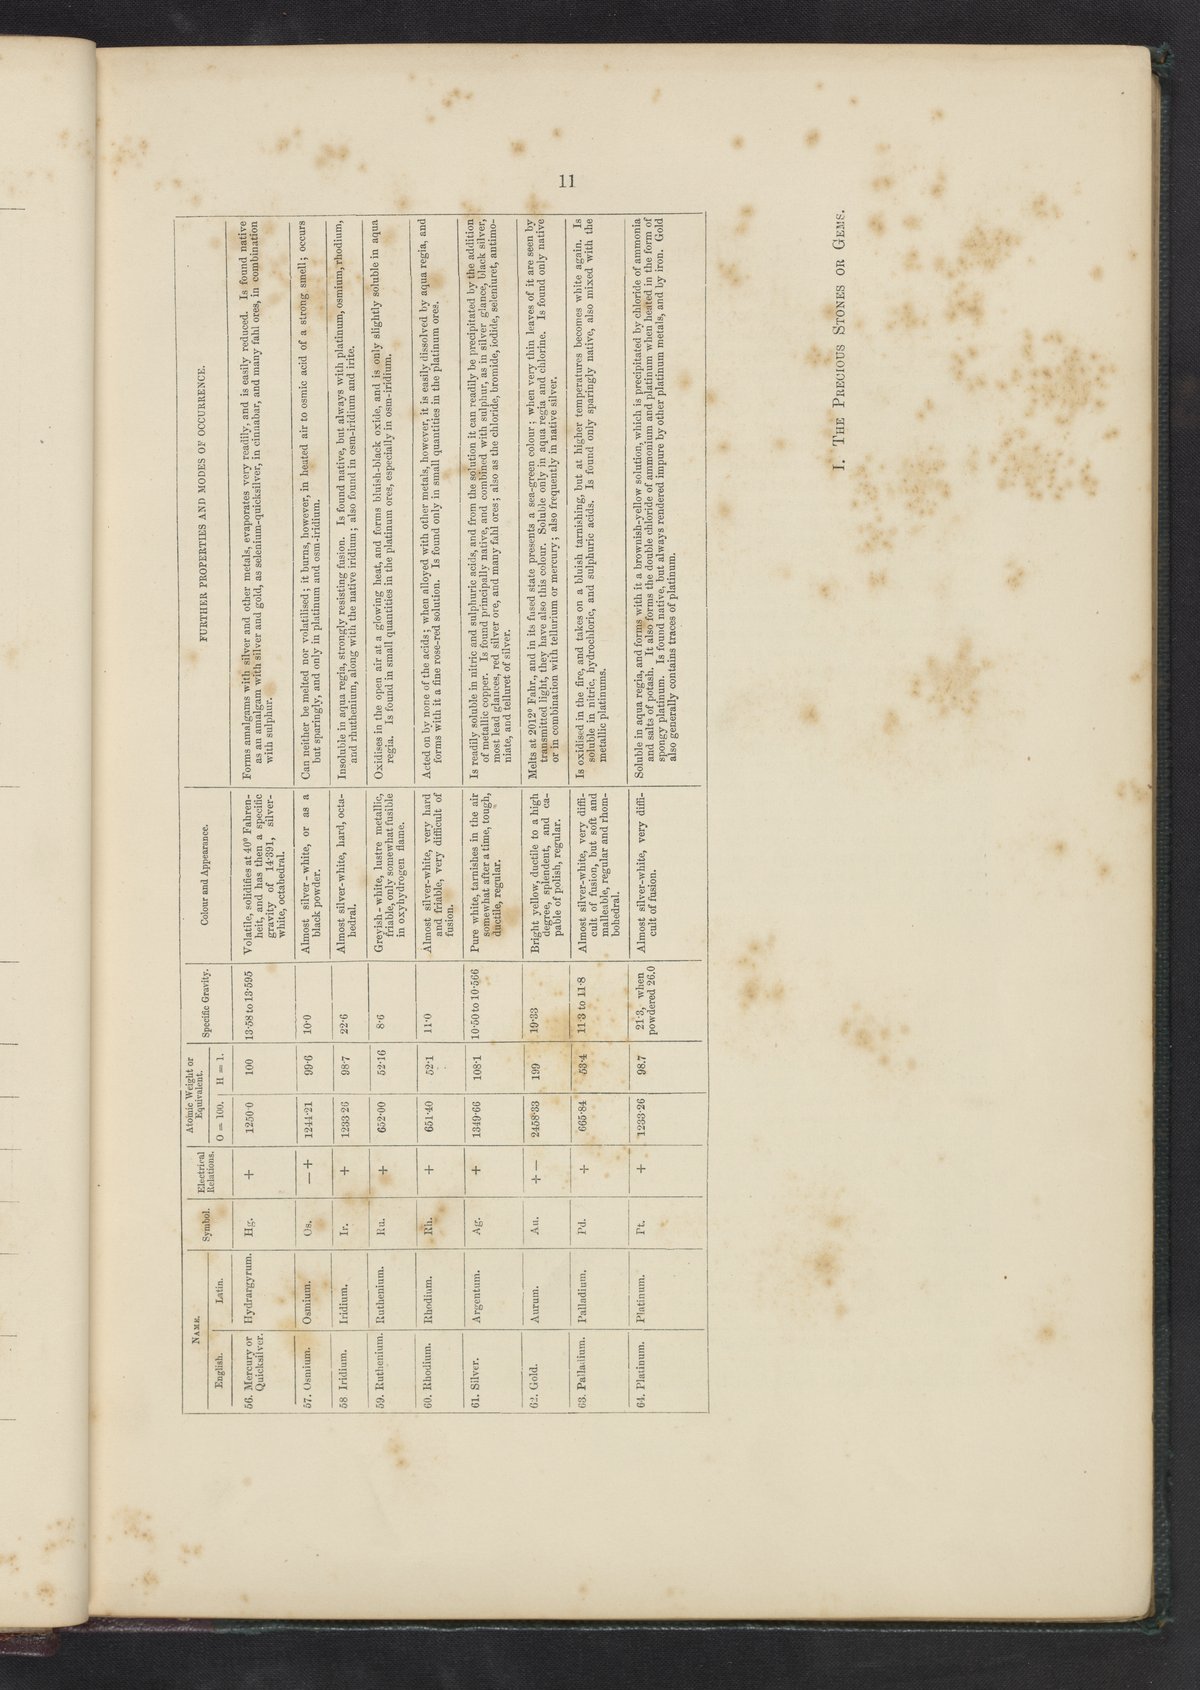 11
NAME.
English.
Latin.
Symbol.
Electrical
Relations.
Atomic Weight or
Equivalent.
O = 100.
H = 1.
Specific Gravity.
Colour and Appearance.
FURTHER PROPERTIES AND MODES OF OCCURRENCE.
56. Mercury or
Quicksilver.
Hydrargyrum.
Hg.
+
1250·0
100
13·58 to 13·595
Volatile, solidifies at 40° Fahren-
heit, and has then a specific
gravity of 14·391, silver-
white, octahedral.
Forms amalgams with silver and other metals, evaporates very readily, and is easily reduced. Is found native
as an amalgam with silver and gold, as selenium-quicksilver, in cinnabar, and many fahl ores, in combination
with sulphur.
57. Osmium.
Osmium.
Os.
— +
1244·21
99·6
10·0
Almost silver-white, or as a
black powder.
Can neither be melted nor volatilised; it burns, however, in heated air to osmic acid of a strong smell; occurs
but sparingly, and only in platinum and osm-iridium.
58 Iridium.
Iridium.
Ir.
+
1233·26
98·7
22·6
Almost silver-white, hard, octa-
hedral.
Insoluble in aqua regia, strongly resisting fusion. Is found native, but always with platinum, osmium, rhodium,
and rhuthenium, along with the native iridium; also found in osm-iridium and irite.
59. Ruthenium.
Ruthenium.
Ru.
+
652·00
52·16
8·6
Greyish-white, lustre metallic,
friable, only somewhat fusible
in oxyhydrogen flame.
Oxidises in the open air at a glowing heat, and forms bluish-black oxide, and is only slightly soluble in aqua
regia. Is found in small quantities in the platinum ores, especially in osm-iridium.
60. Rhodium.
Rhodium.
Rh.
+
651·40
52·1
11·0
Almost silver-white, very hard
and friable, very difficult of
fusion.
Acted on by none of the acids; when alloyed with other metals, however, it is easily dissolved by aqua regia, and
forms with it a fine rose-red solution. Is found only in small quantities in the platinum ores.
61. Silver.
Argentum.
Ag.
+
1349·66
108·1
10·50 to 10·566
Pure white, tarnishes in the air
somewhat after a time, tough,
ductile, regular.
Is readily soluble in nitric and sulphuric acids, and from the solution it can readily be precipitated by the addition
of metallic copper. Is found principally native, and combined with sulphur, as in silver glance, black silver,
most lead glances, red silver ore, and many fahl ores; also as the chloride, bromide, iodide, seleniuret, antimo-
niate, and telluret of silver.
62. Gold.
Aurum.
Au.
+ —
2458·33
199
19·33
Bright yellow, ductile to a high
degree, splendent, and ca-
pable of polish, regular.
Melts at 2012° Fahr., and in its fused state presents a sea-green colour; when very thin leaves of it are seen by
transmitted light, they have also this colour. Soluble only in aqua regia and chlorine. Is found only native
or in combination with tellurium or mercury; also frequently in native silver.
63. Palladium.
Palladium.
Pd.
+
665·84
53·4
11·3 to 11·8
Almost silver-white, very diffi-
cult of fusion, but soft and
malleable, regular and rhom-
bohedral.
Is oxidised in the fire, and takes on a bluish tarnishing, but at higher temperatures becomes white again. Is
soluble in nitric, hydrochloric, and sulphuric acids. Is found only sparingly native, also mixed with the
metallic platinums.
64. Platinum.
Platinum.
Pt.
+
1233·26
98.7
21·3, when
powdered 26.0
Almost silver-white, very diffi-
cult of fusion.
Soluble in aqua regia, and forms with it a brownish-yellow solution, which is precipitated by chloride of ammonia
and salts of potash. It also forms the double chloride of ammonium and platinum when heated in the form of
spongy platinum. Is found native, but always rendered impure by other platinum metals, and by iron. Gold
also generally contains traces of platinum.
I. THE PRECIOUS STONES OR GEMS.